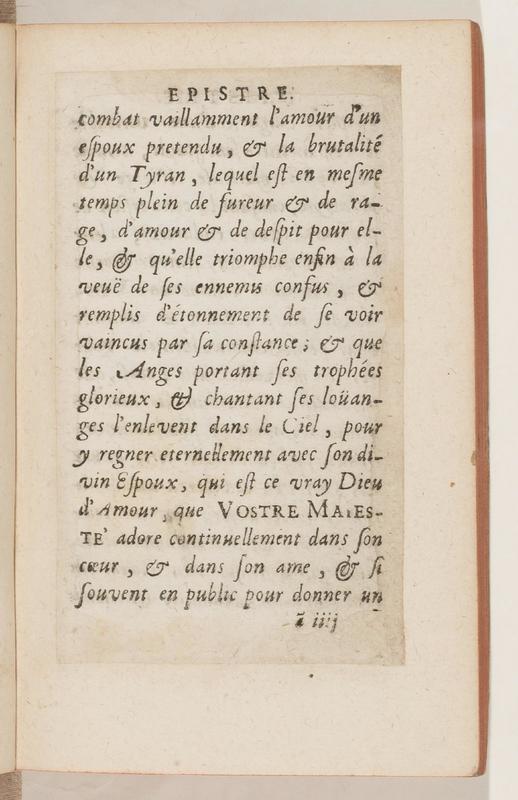 EPISTRE.
combat vaillamment l'amour d'un
eſpoux pretendu, & la brutalité
d'un Tyran, lequel eſt en meſme
temps plein de fureur & de ra-
ge, d'amour & de deſpit pour el-
le, & qu'elle triomphe enfin à la
veuë de ſes ennemis confus, &
remplis d'étonnement de ſe voir
vaincus par ſa conſtance; & que
les Anges portant ſes trophées
glorieux, & chantant ſes loüan-
ges l'enlevent dans le Ciel, pour
y regner eternellement avec ſon di-
vin Eſpoux, qui eſt ce vray Dieu
d'Amour, que VOSTRE MAIES-
TE' adore continuellement dans ſon
cœur, & dans ſon ame, & ſi
ſouvent en public pour donner un
ã iiij